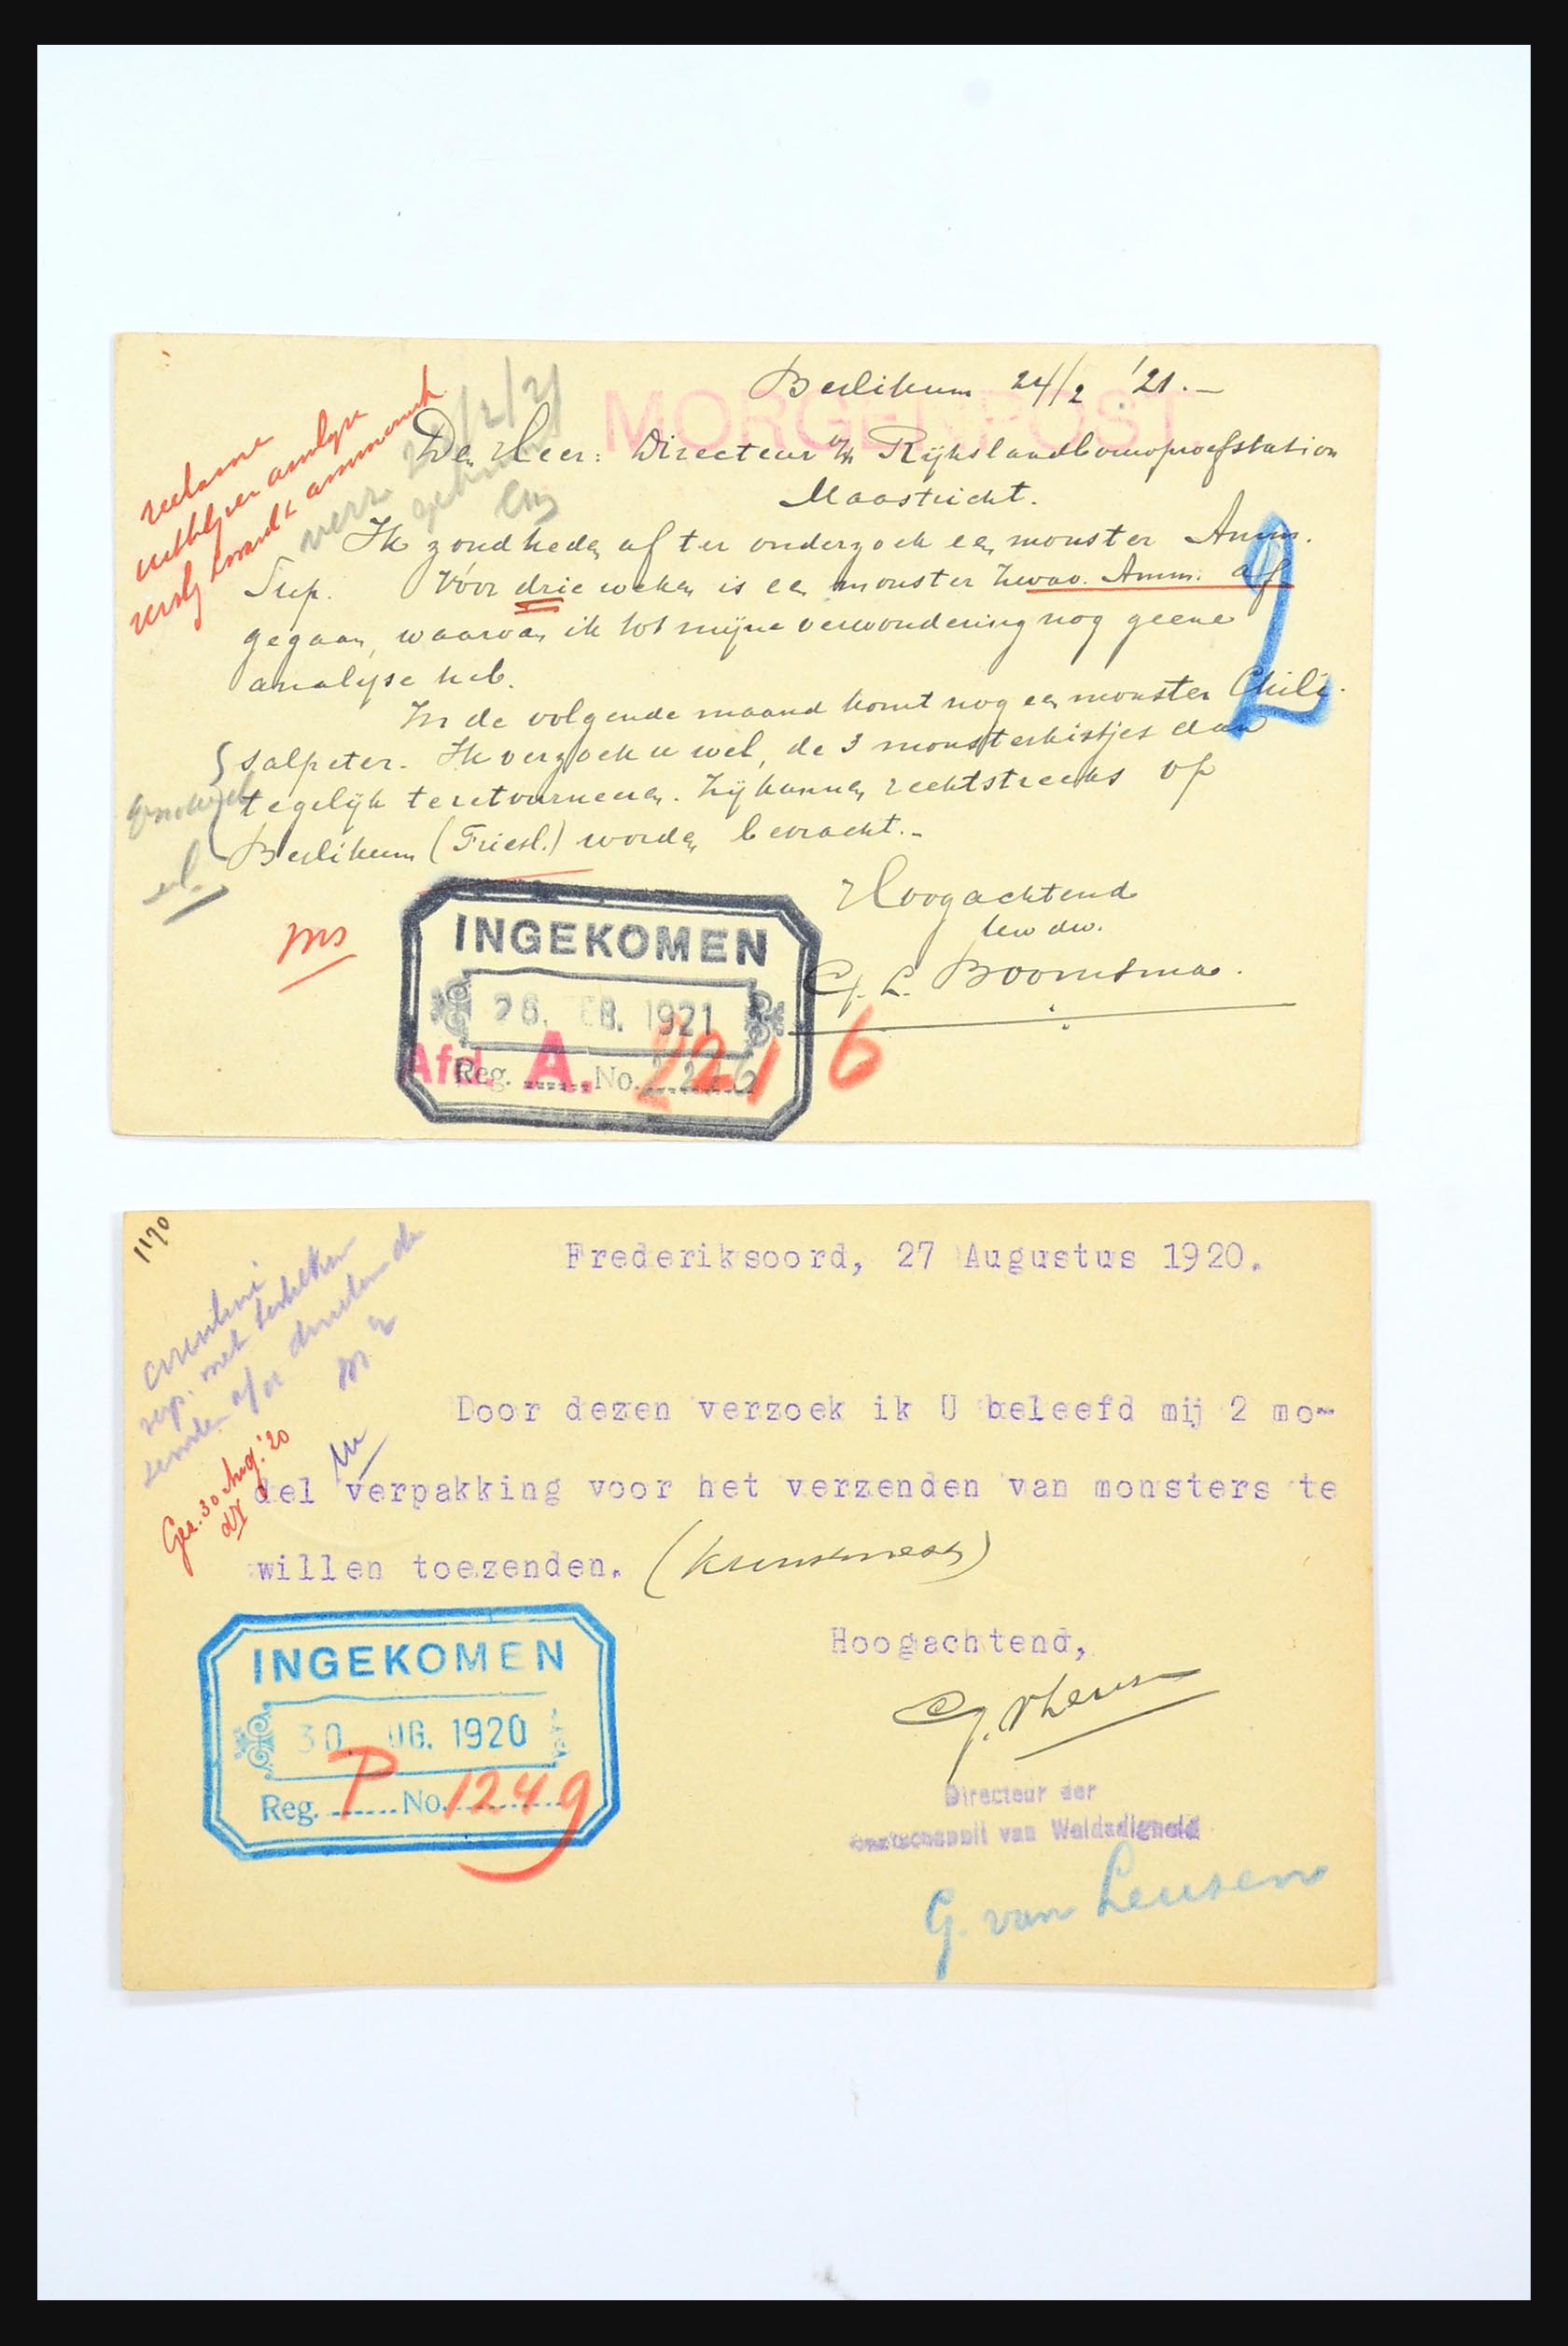 MORGENPOST
Berlikum 24/2 '21.-
Den Heer: Directeur v/h Rijkslandbouwproefstation
Maastricht.
Ik zond heden af ter onderzoek een monster Amm.
Sup. Vóór drie weken is een monster Zwav. Amm. af
gegaan, waarvan ik tot mijne verwondering nog geene
analyse heb.
In de volgende maand komt nog een monster Chili-
salpeter. Ik verzoek u wel, de 3 monsterkistjes dan
tegelijk te retourneeren. Zij kunnen rechtstreeks op
Berlikum (Friesl.) worden bevracht.-
Hoogachtend
Uw dw.
G. L. Boomsma.
reclame
24/2/21
2
INGEKOMEN
26. EB. 1921
Afd. A.
Reg. No. 2216
1170
Frederiksoord, 27 Augustus 1920.
Door dezen verzoek ik U beleefd mij 2 mo-
del verpakking voor het verzenden van monsters te
willen toezenden. (kunstmest)
Hoogachtend,
Directeur der
Maatschappij van Weldadigheid
G. van Leusen
Gez. 30 Aug. '20
INGEKOMEN
30. UG. 1920
Reg. P No. 1249